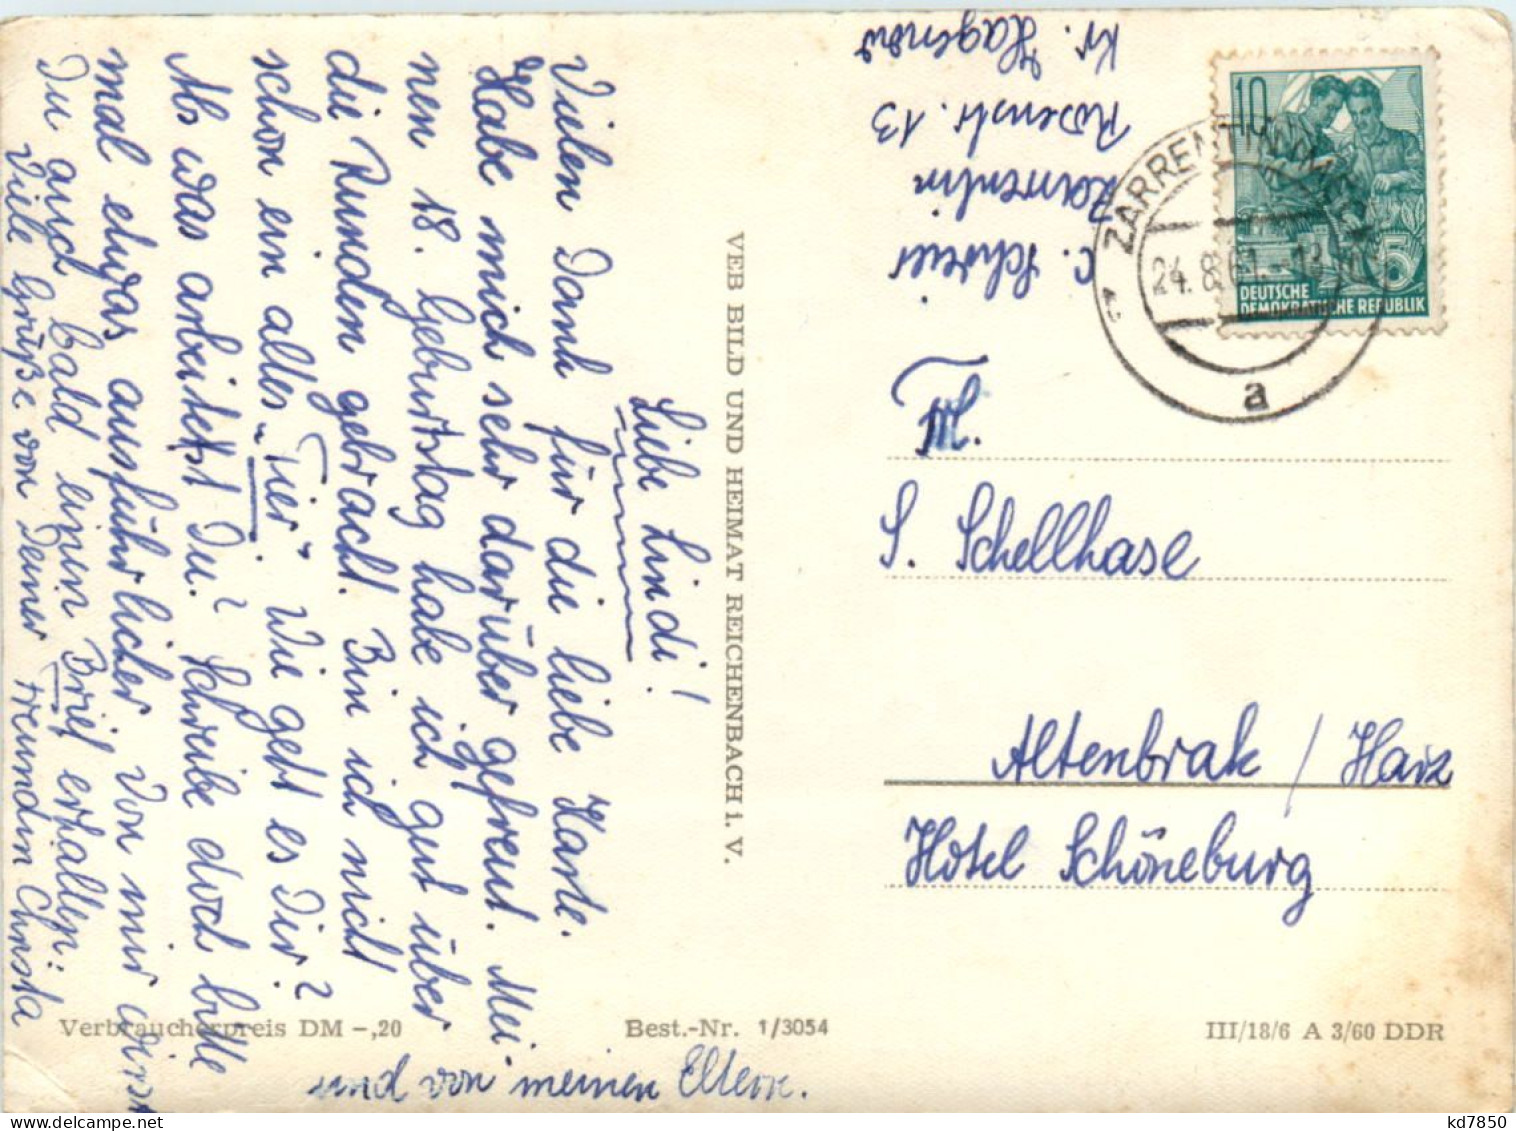 Liebe Lindi!
Vielen Dank für die liebe Karte.
Habe mich sehr darüber gefreut. Mei-
nen 18. Geburtstag habe ich gut über
die Runden gebracht. Bin ich nicht
schon ein altes „Tier“. Wie geht es Dir?
Als was arbeitest Du? Schreibe doch bitte
mal etwas ausführlicher. Von mir wirst
Du auch bald einen Brief erhalten.
Viele Grüße von Deiner Freundin Christa
und von meinen Eltern.
VEB BILD UND HEIMAT REICHENBACH i. V.
C. Schreier
Zarrentin
Rosenstr. 13
Kr. Hagenow
10
5
DEUTSCHE
DEMOKRATISCHE REPUBLIK
ZARRENTIN
24.8.61
a
Frl.
S. Schellhase
Altenbrak / Harz
Hotel Schöneburg
Verbraucherpreis DM –,20
Best.-Nr. 1/3054
III/18/6 A 3/60 DDR
kd7850